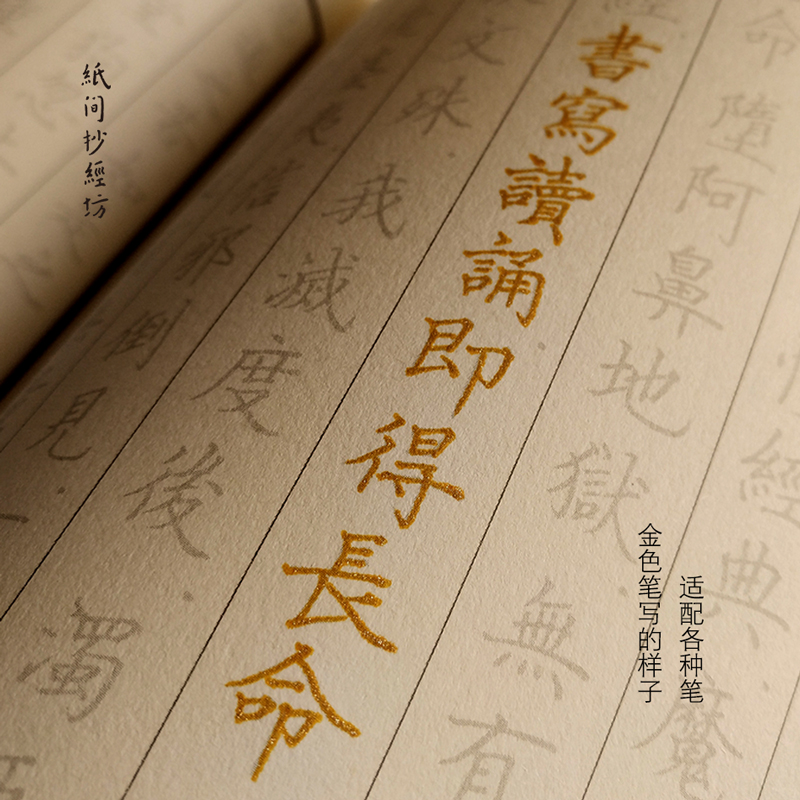 經典魔
命墮阿鼻地獄無有
經書寫讀誦即得長命
文殊我滅度後濁
信邪倒見
紙间抄經坊
适配各种笔
金色笔写的样子